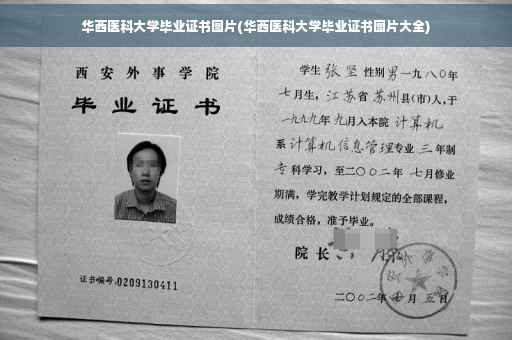 华西医科大学毕业证书图片(华西医科大学毕业证书图片大全)
西安外事学院
毕业证书
证书编号:0209130411
学生 张坚 性别男一九八〇年
七月生，江苏省 苏州县(市)人,于
一九九九年 九月入本院 计算机
系 计算机信息管理专业 三 年制
专 科学习，至二〇〇二年 七月修业
期满，学完教学计划规定的全部课程，
成绩合格，准予毕业。
院长
二〇〇二年 月 五日